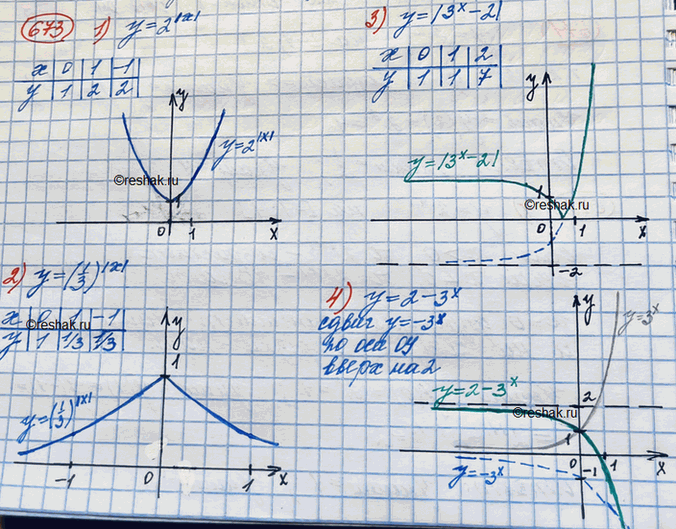 673 1) y=2^|x|
x | 0 | 1 | -1 |
y | 1 | 2 | 2 |
y
y=2^|x|
©reshak.ru
1
0 1 x
2) y=(1/3)^|x|
x | 0 | 1 | -1
y | 1 | 1/3 | 1/3
©reshak.ru
y
1
y=(1/3)^|x|
-1 0 1 x
3) y=|3^x-2|
x | 0 | 1 | 2 |
y | 1 | 1 | 7 |
y
y=|3^x-2|
1
©reshak.ru
0 1 x
-2
4) y=2-3^x
сдвиг y=-3^x
по оси Oy
вверх на 2
y
y=3^x
y=2-3^x
2
©reshak.ru
1
0 1 x
-1
y=-3^x